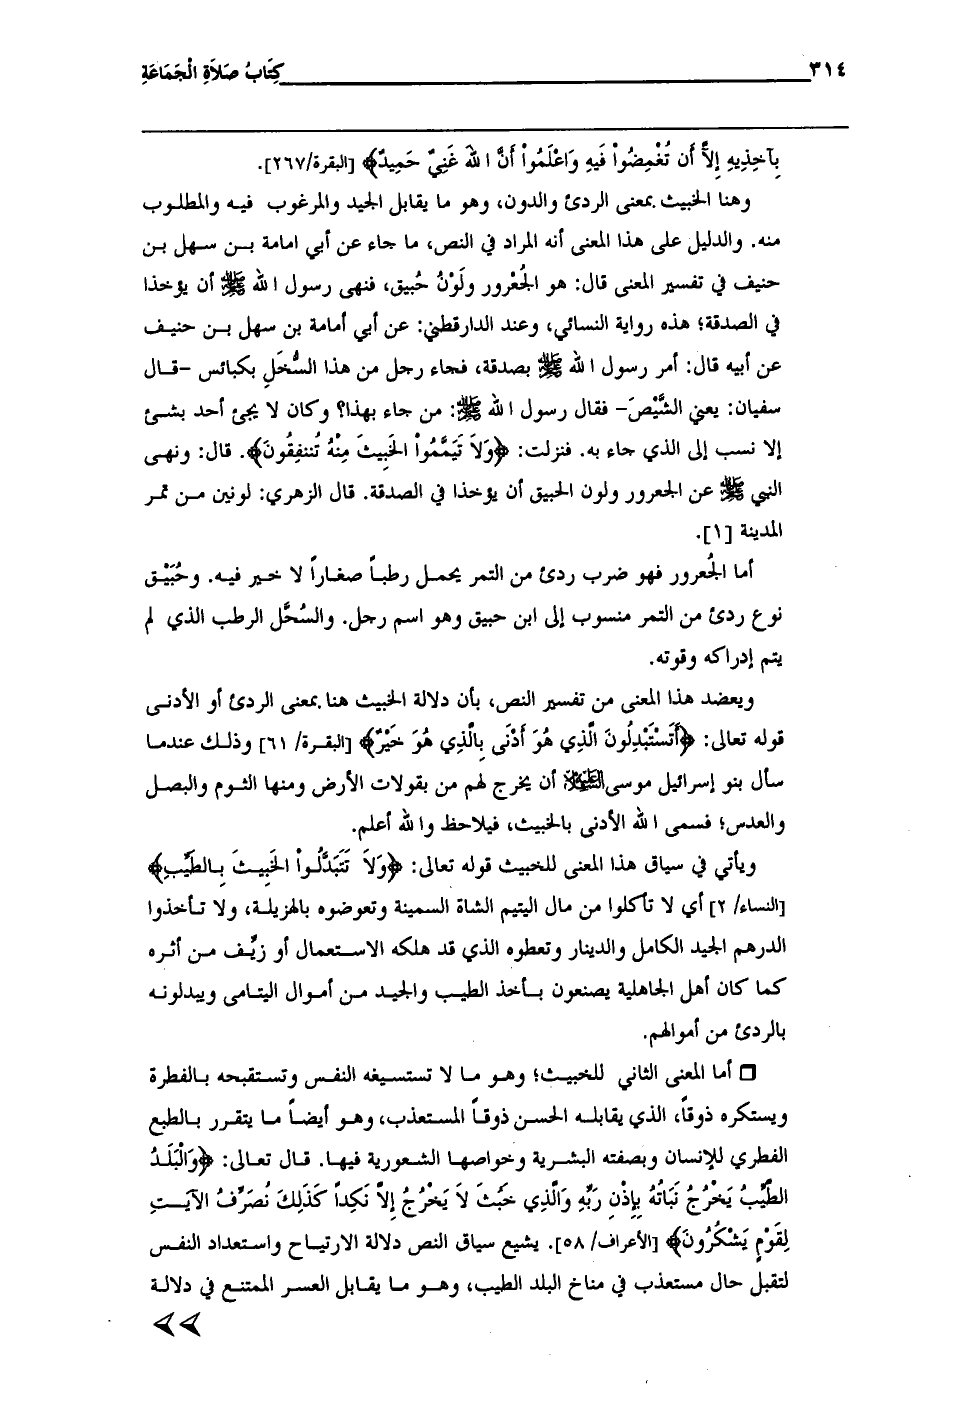 ٣١٤ كِتَابُ صَلاَةِ الْجَمَاعَةِ
بِآخِذِيهِ إِلاَّ أَن تُغْمِضُواْ فِيهِ وَاعْلَمُواْ أَنَّ اللهَ غَنِيٌّ حَمِيدٌ﴾ [البقرة/٢٦٧].
وهنا الخبيث بمعنى الردئ والدون، وهو ما يقابل الجيد والمرغوب فيـه والمطلـوب
منه. والدليل على هذا المعنى أنه المراد في النص، ما جاء عن أبي امامة بـن سـهل بن
حنيف في تفسير المعنى قال: هو الجُعْرور ولَوْنُ حُبيق، فنهى رسول الله ﷺ أن يؤخذا
في الصدقة؛ هذه رواية النسائي، وعند الدارقطني: عن أبي أمامة بن سهل بـن حنيف
عن أبيه قال: أمر رسول الله ﷺ بصدقة، فجاء رجل من هذا السُّخَلِ بكبائس -قـال
سفيان: يعني الشَّيْصَ- فقال رسول الله ﷺ: من جاء بهذا؟ وكان لا يجئ أحد بشئ
إلا نسب إلى الذي جاء به. فنزلت: ﴿وَلاَ تَيَمَّمُواْ الخَبِيثَ مِنْهُ تُنفِقُونَ﴾. قال: ونهـى
النبي ﷺ عن الجعرور ولون الحبيق أن يؤخذا في الصدقة. قال الزهري: لونين مـن تمـر
المدينة [١].
أما الجُعرور فهو ضرب ردئ من التمر يحمـل رطبـاً صغـاراً لا خـير فيـه. وحُبَيْـق
نوع ردئ من التمر منسوب إلى ابن حبيق وهو اسم رجل. والسُخَّل الرطب الذي لم
يتم إدراكه وقوته.
ويعضد هذا المعنى من تفسير النص، بأن دلالة الخبيث هنا بمعنى الردئ أو الأدنـى
قوله تعالى: ﴿أَتَسْتَبْدِلُونَ الَّذِي هُوَ أَدْنَى بِالَّذِي هُوَ خَيْرٌ﴾ [البقـرة/ ٦١] وذلـك عندمـا
سأل بنو إسرائيل موسى العَلَيْهِ السَّلاَمْ أن يخرج لهم من بقولات الأرض ومنها الثـوم والبصـل
والعدس؛ فسمى الله الأدنى بالخبيث، فيلاحظ والله أعلم.
ويأتي في سياق هذا المعنى للخبيث قوله تعالى: ﴿وَلاَ تَتَبَدَّلُـواْ الخَبِيـثَ بِـالطَّيِّبِ﴾
[النساء/ ٢] أي لا تأكلوا من مال اليتيم الشاة السمينة وتعوضوه بالهزيلـة، ولا تـأخذوا
الدرهم الجيد الكامل والدينار وتعطوه الذي قد هلكه الاسـتعمال أو زيِّـف مـن أثـره
كما كان أهل الجاهلية يصنعون بـأخذ الطيـب والجيـد مـن أمـوال اليتامـى ويبدلونـه
بالردئ من أموالهم.
❒ أما المعنى الثاني للخبيـث؛ وهـو مـا لا تستسـيغه النفـس وتسـتقبحه بـالفطرة
ويستكره ذوقاً، الذي يقابلـه الحسـن ذوقـاً المسـتعذب، وهـو أيضـاً مـا يتقـرر بـالطبع
الفطري للإنسان وبصفته البشـرية وخواصهـا الشـعورية فيهـا. قـال تعـالى: ﴿وَالْبَلَـدُ
الطَّيِّبُ يَخْرُجُ نَبَاتُهُ بِإِذْنِ رَبِّهِ وَالَّذِي خَبُثَ لاَ يَخْرُجُ إِلاَّ نَكِداً كَذَلِكَ نُصَرِّفُ الآيَـتِ
لِقَوْمٍ يَشْكُرُونَ﴾ [الأعراف/ ٥٨]. يشيع سياق النص دلالة الارتيـاح واستعداد النفس
لتقبل حال مستعذب في مناخ البلد الطيب، وهـو مـا يقـابل العسـر الممتنـع في دلالـة